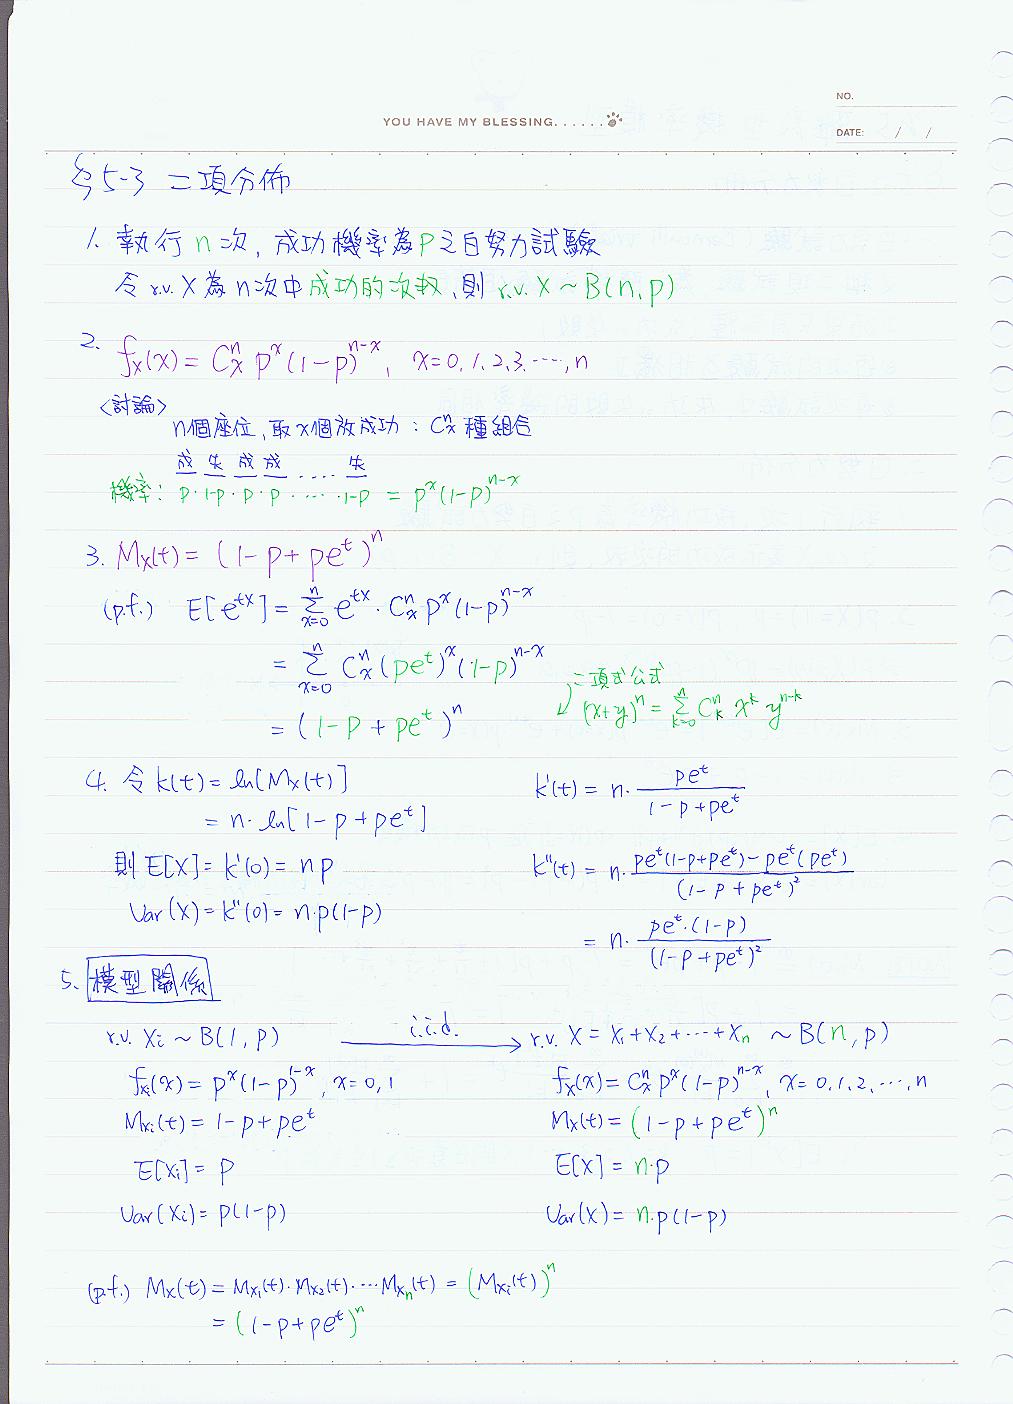 NO.
YOU HAVE MY BLESSING......
DATE: / /
§5-3 二項分佈
1. 執行 n 次, 成功機率為 p 之白努力試驗
令 r.v. X 為 n 次中成功的次数, 則 r.v. X ~ B(n, p)
2. f_X(x) = C^n_x p^x (1-p)^{n-x}, x = 0, 1, 2, 3, ……, n
<討論>
n個座位, 取 x 個放成功 : C^n_x 種組合
成 失 成 成 .... 失
機率: p · 1-p · p · p · …… · 1-p = p^x (1-p)^{n-x}
3. M_X(t) = (1-p+pe^t)^n
(p.f.) E[e^{tX}] = Σ_{x=0}^{n} e^{tx} · C^n_x p^x (1-p)^{n-x}
= Σ_{x=0}^{n} C^n_x (pe^t)^x (1-p)^{n-x}
二項式公式
= (1-p + pe^t)^n
(x+y)^n = Σ_{k=0}^{n} C^n_k x^k y^{n-k}
4. 令 k(t) = ln[M_X(t)]
= n · ln[1-p+pe^t]
則 E[X] = k'(0) = np
Var(X) = k''(0) = n·p(1-p)
k'(t) = n · pe^t / (1-p+pe^t)
k''(t) = n · pe^t(1-p+pe^t) - pe^t(pe^t) / (1-p+pe^t)^2
= n · pe^t·(1-p) / (1-p+pe^t)^2
5. 模型關係
r.v. X_i ~ B(1, p) i.i.d. → r.v. X = X_1 + X_2 + … + X_n ~ B(n, p)
f_{X_i}(x) = p^x (1-p)^{1-x}, x = 0, 1
f_X(x) = C^n_x p^x (1-p)^{n-x}, x = 0, 1, 2, …, n
M_{X_i}(t) = 1-p+pe^t
M_X(t) = (1-p+pe^t)^n
E[X_i] = p
E[X] = n·p
Var(X_i) = p(1-p)
Var(X) = n·p(1-p)
(p.f.) M_X(t) = M_{X_1}(t) · M_{X_2}(t) · … M_{X_n}(t) = (M_{X_i}(t))^n
= (1-p+pe^t)^n